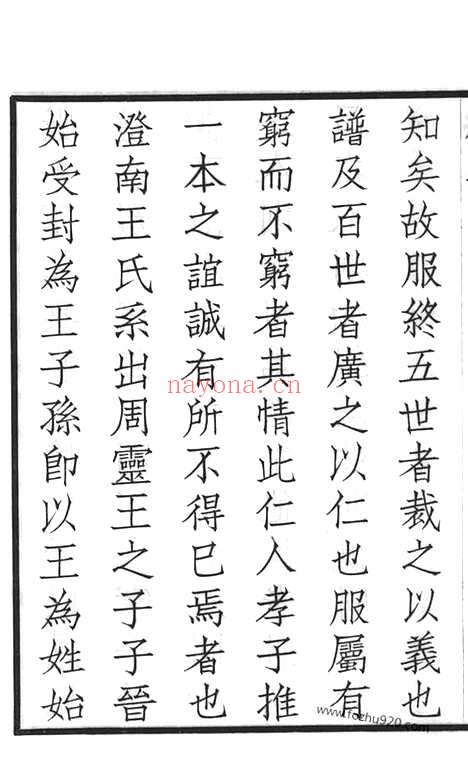 知矣故服終五世者裁之以義也
譜及百世者廣之以仁也服屬有
窮而不窮者其情此仁人孝子推
一本之誼誠有所不得已焉者也
澄南王氏系出周靈王之子子晉
始受封為王子孫即以王為姓始
nayona.cn
www.foezhu920.com